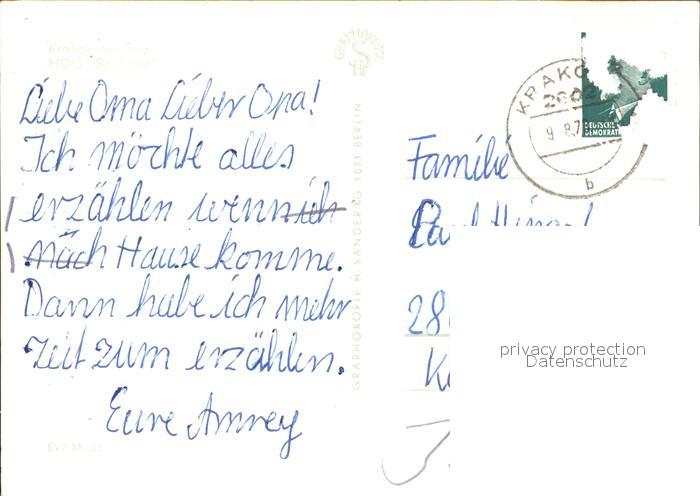 Krakow am See
HOG "Seehotel"
Liebe Oma Lieber Opa!
Ich möchte alles
erzählen wenn ich
nach Hause komme.
Dann habe ich mehr
Zeit zum erzählen.
Eure Amrey
GRAPHOKOPIE H. SANDER KG 1071 BERLIN
GRAPHOKOPIE
KRAKO
2602
9.8.7
b
DEUTSCHE
DEMOKRAT
Familie
28
privacy protection
Datenschutz